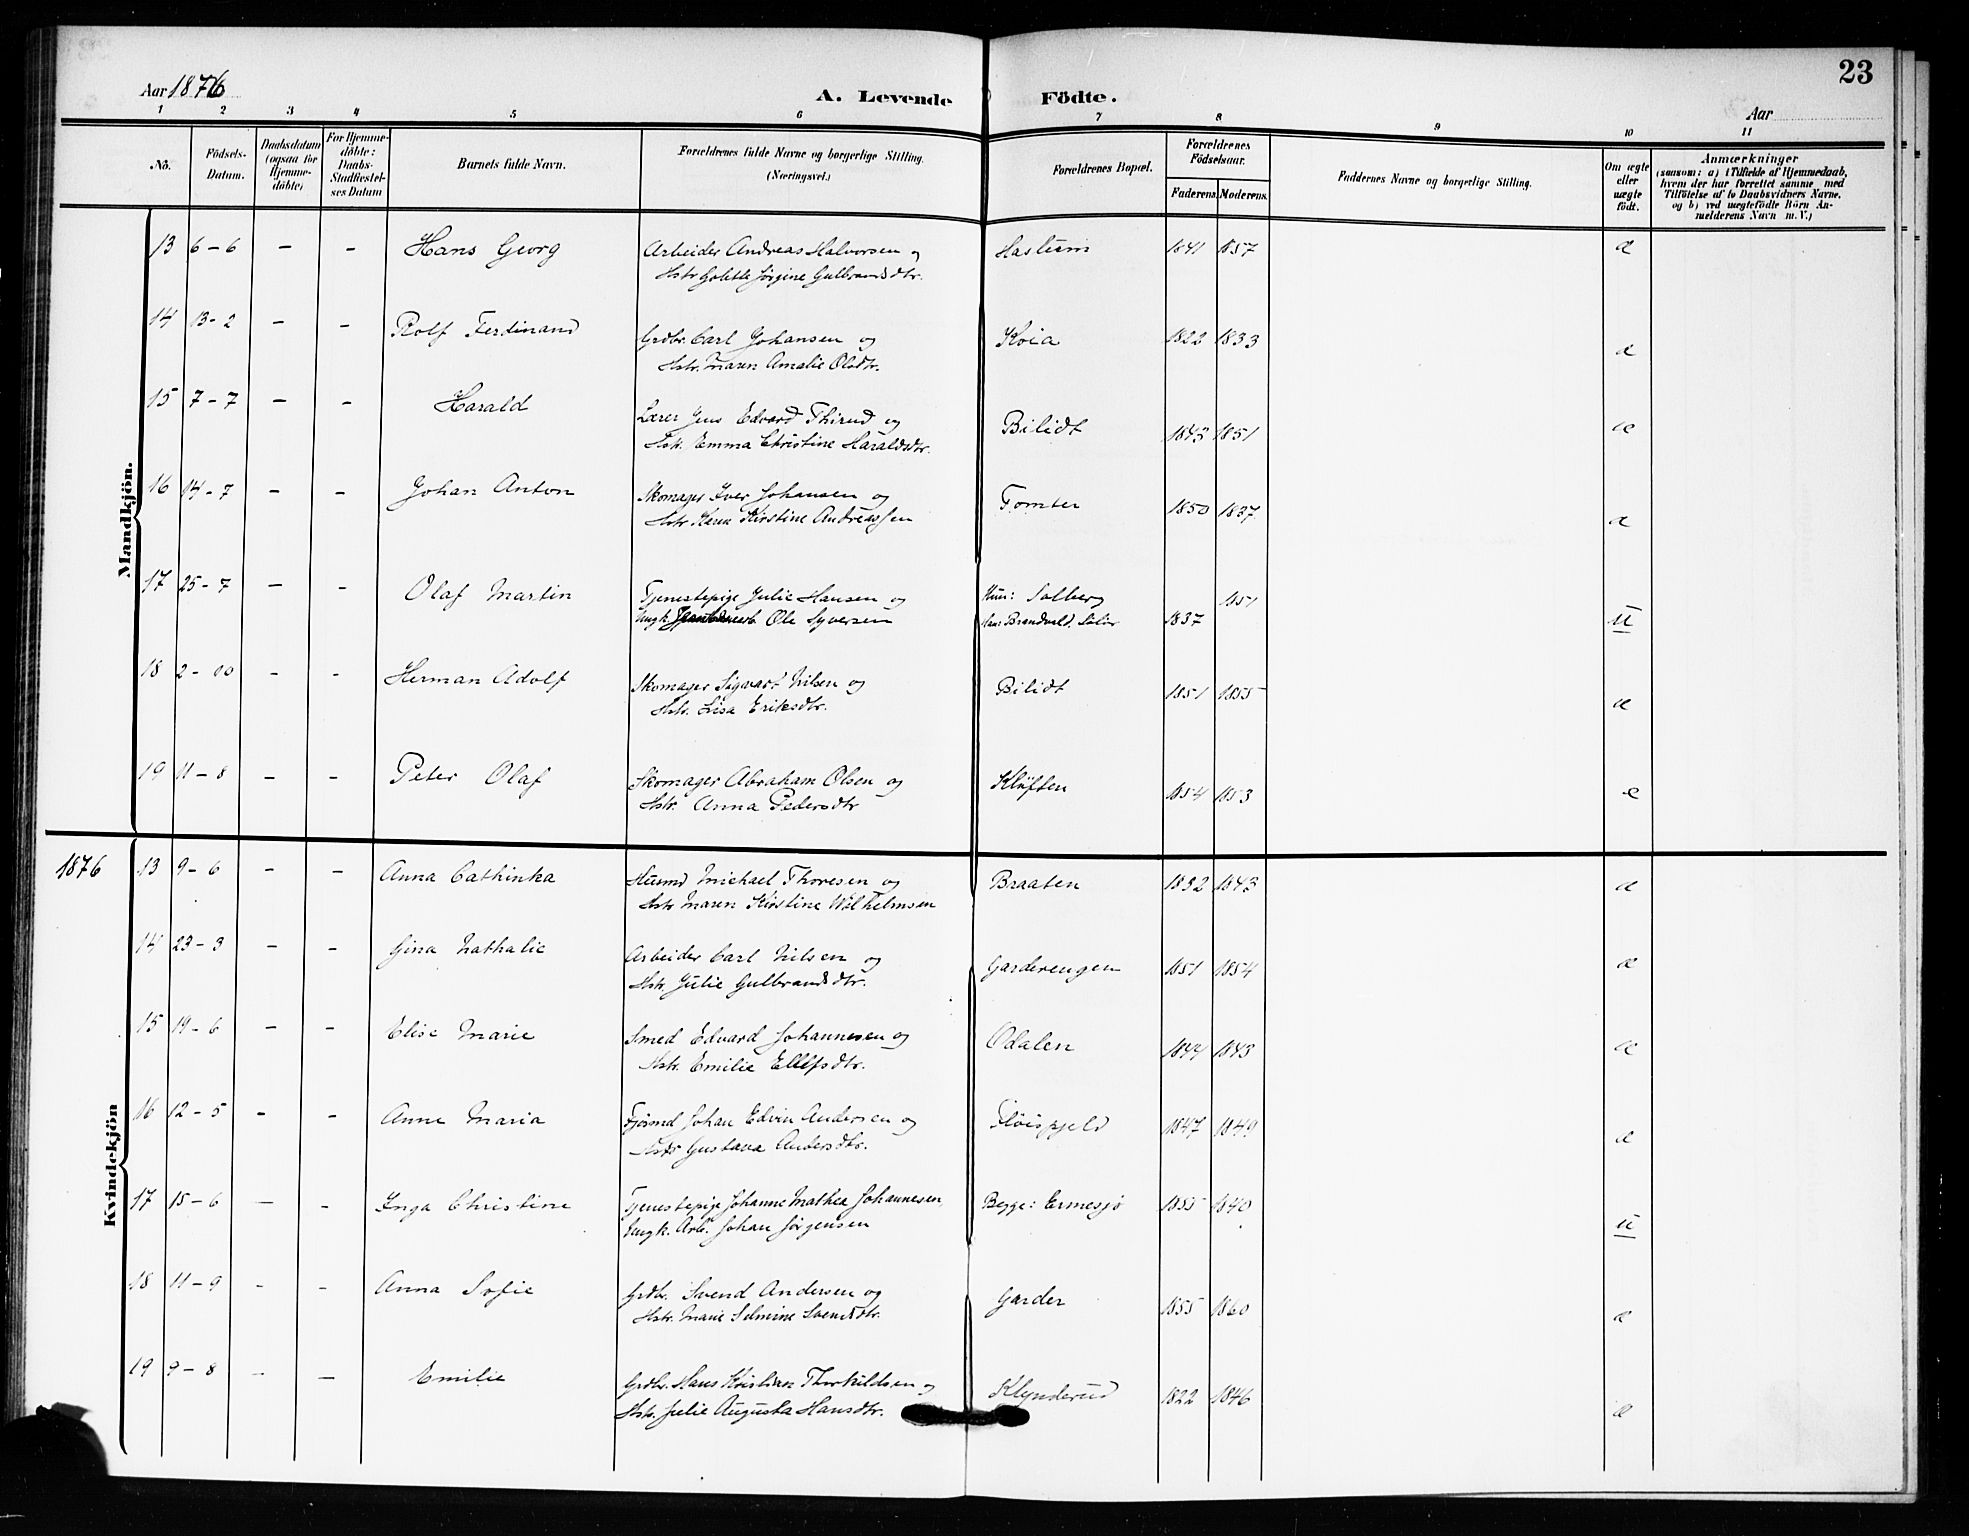 23
Aar 1876
A. Levende Födte.
Aar
1 2 3 4 5 6 7 8 9 10 11
No.
Födsels-Datum.
Daabsdatum (ogsaa for Hjemmedøbte)
For Hjemmedøbte: Daabs-Stadfæstelses Datum
Barnets fulde Navn.
Forældrenes fulde Navne og borgerlige Stilling. (Næringsvei.)
Forældrenes Bopæl.
Forældrenes Födselsaar.
Faderens. Moderens.
Faddernes Navne og borgerlige Stilling.
Om ægte eller uægte født.
Anmærkninger
(saasom: a) i Tilfælde af Hjemmedaab, hvem der har forrettet samme med Tilføielse af to Daabsvidners Navne, og b) ved uægtefödte Börn Anmelderens Navn m. V.)
Mandkjön.
13 6-6 – – Hans Georg Arbeider Andreas Halvorsen og Haslum 1841 1857 æ
Hstr Golette Jørgine Gulbrandsdtr.
14 13-2 – – Rolf Ferdinand Grdbr. Carl Johansen og Koia 1822 1833 æ
Hstr. Maren Amalie Olsdtr.
15 7-7 – – Harald Lærer Jens Edvard Thirud og Bilidt 1843 1851 æ
Hstr. Emma Christine Haraldsdtr.
16 14-7 – – Johan Anton Skomager Iver Johansen og Tomter 1850 1837 æ
Hstr Karen Kirstine Andreassen
17 25-7 – – Olaf Martin Tjenestepige Julie Hansen og Hun: Solberg 1851
Ungk. Ole Syversen Han: Brandvold, Solør 1837 u
18 2-00 – – Herman Adolf Skomager Sigvart Nilsen og Bilidt 1851 1855 æ
Hstr. Lisa Eriksdtr.
19 11-8 – – Peter Olaf Skomager Abraham Olsen og Kløften 1854 1853 æ
Hstr. Anna Pedersdtr
1876
Kvindekjön
13 9-6 – – Anna Cathinka Husmd Michael Thoresen og Braaten 1832 1843 æ
Hstr Maren Kirstine Wilhelmsen
14 23-3 – – Gina Nathalie Arbeider Carl Nilsen og Garderengen 1851 1854 æ
Hstr Julie Gulbrandsdtr.
15 19-6 – – Elise Marie Smed Edvard Johannesen og Odalen 1844 1843 æ
Hstr. Emilie Ellefsdtr.
16 12-5 – – Anne Maria Johan Edvin Andersen og Fløispjeld 1847 1849 æ
Hstr Gustava Andersdtr.
17 15-6 – – Inga Christine Tjenestepige Johanne Mathea Johannesen, Begge: Ermesjø 1855 1840 u
Ungk. Arb. Johan Jørgensen
18 11-9 – – Anna Sofie Grdbr. Svend Andersen og Garder 1855 1860 æ
Hstr. Marie Selmine Svendsdtr.
19 9-8 – – Emilie Grdbr. Hans Kristian Thorkildsen og Klynderud 1822 1846 æ
Hstr. Julie Augusta Hansdtr.